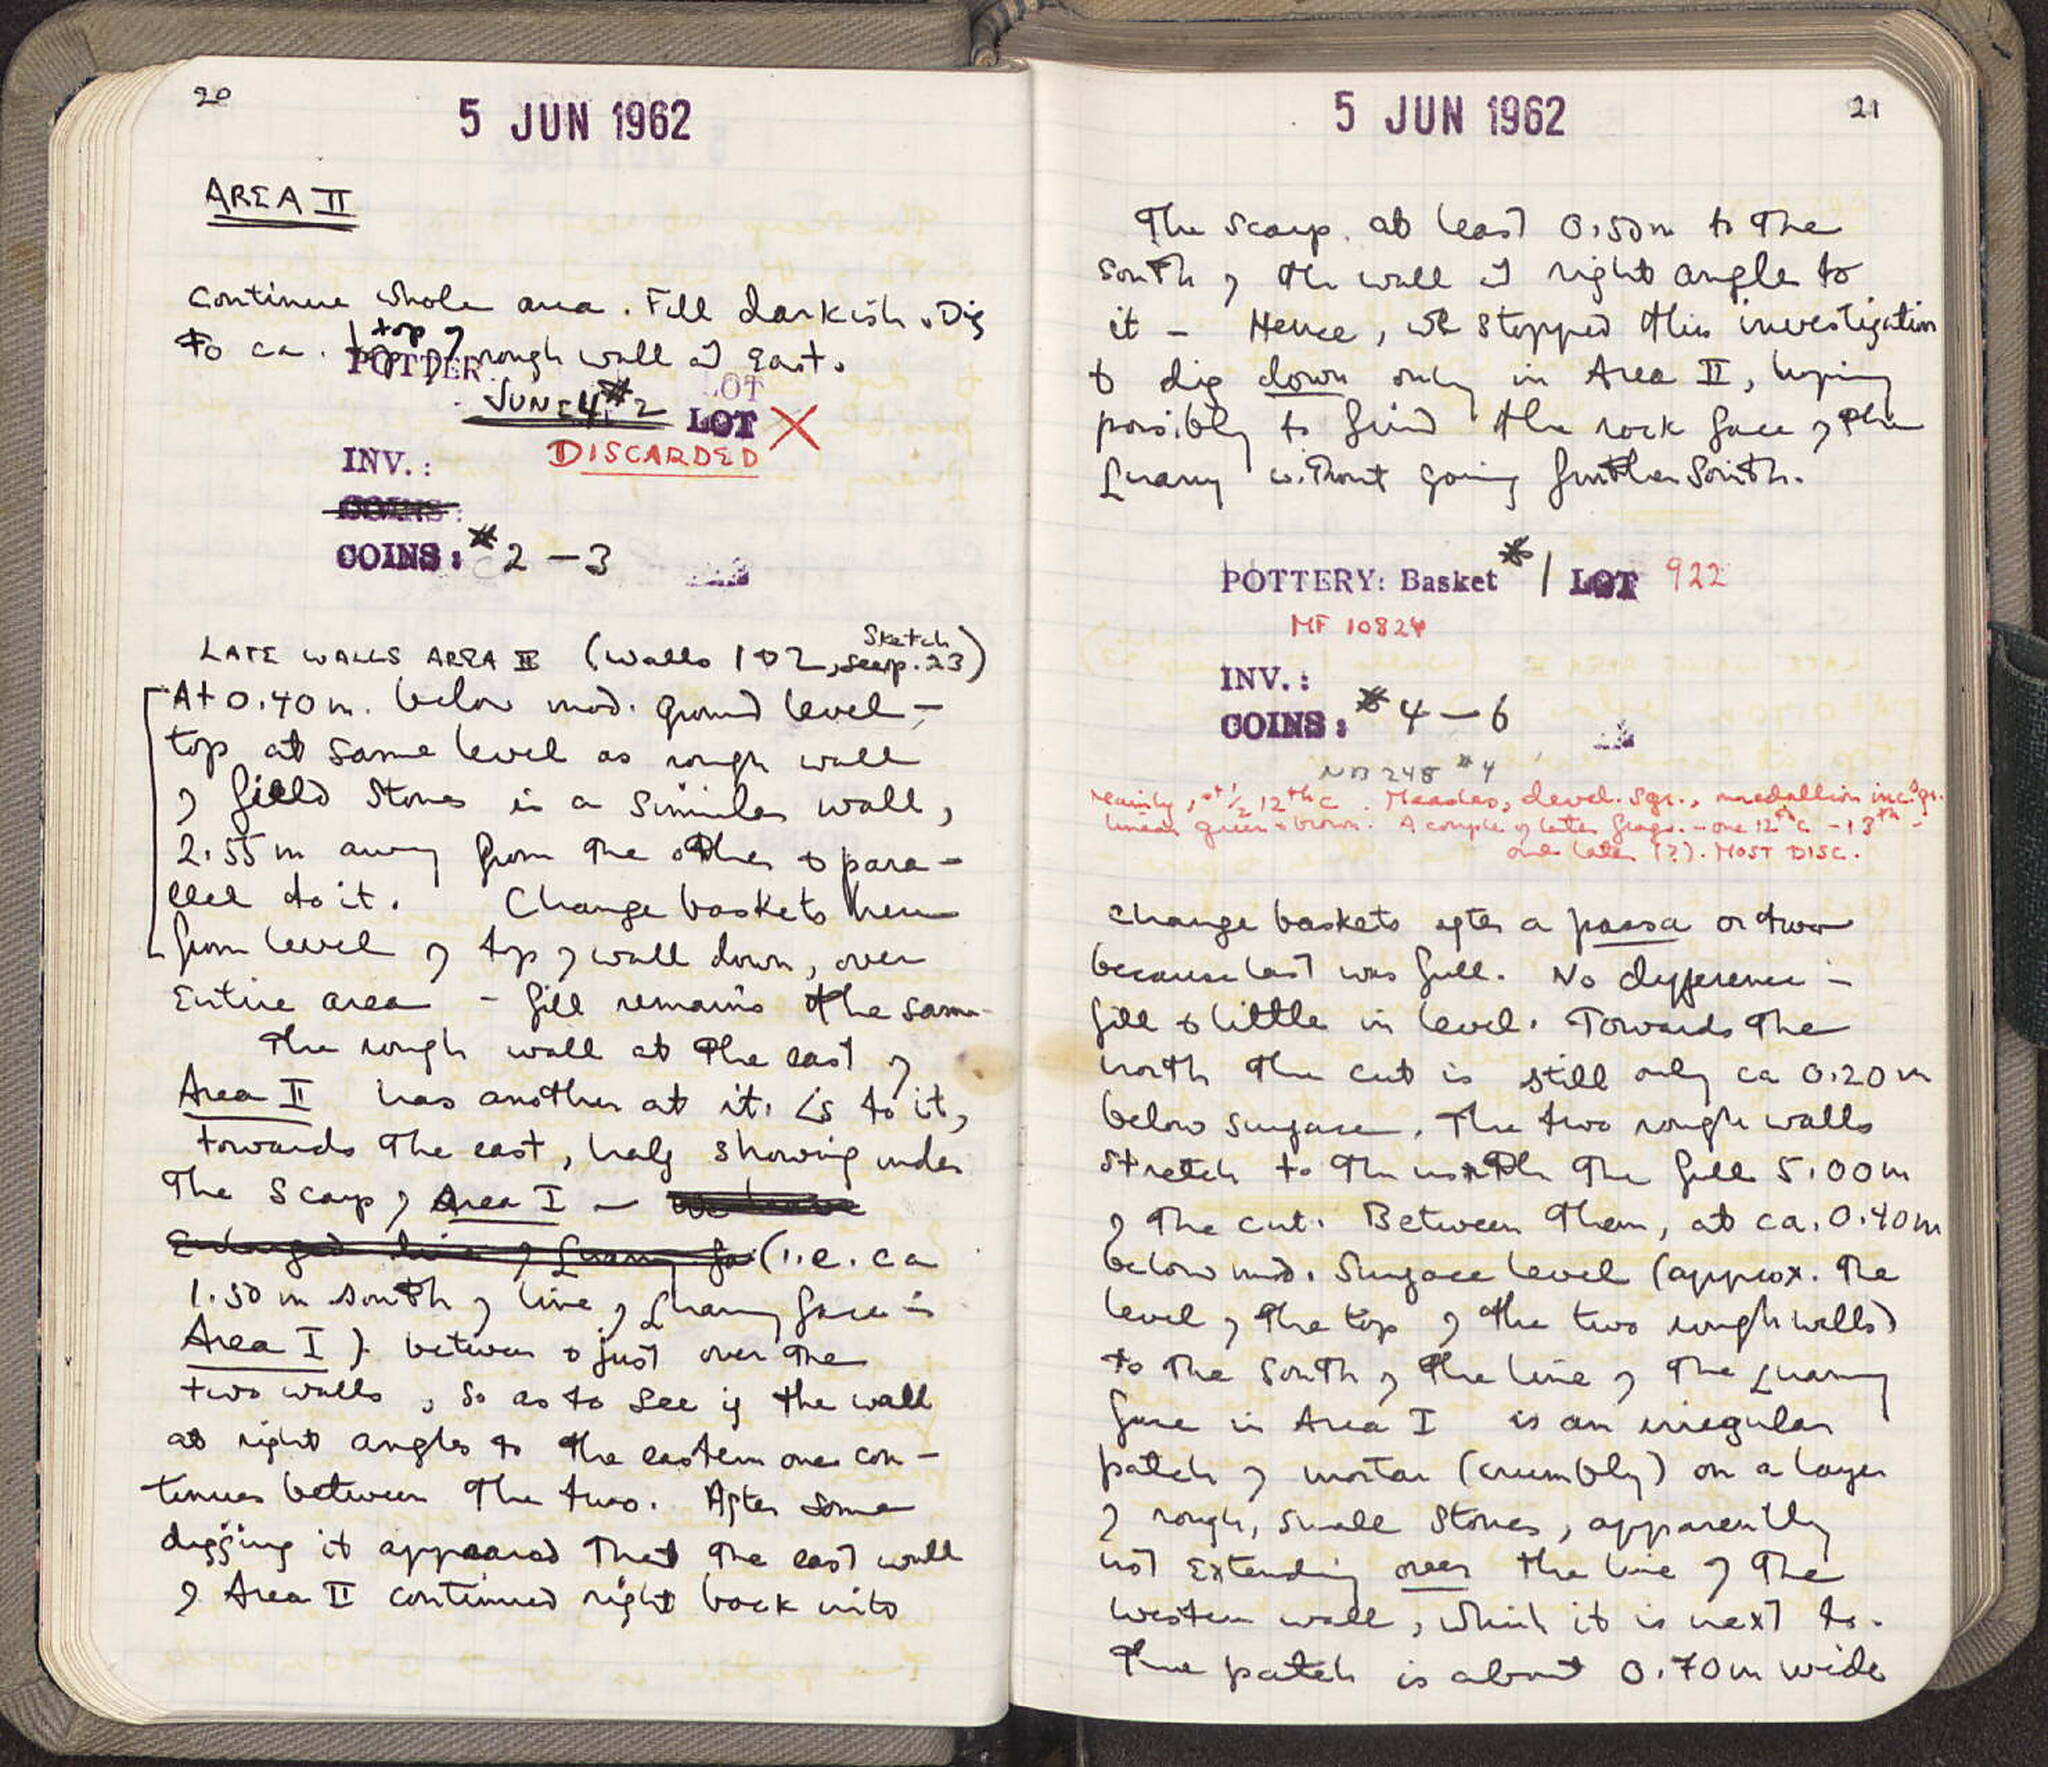 20
5 JUN 1962
AREA II
continue whole area. Fill darkish. Dig
to ca. top of rough wall at East.
POTTER
JUNE 4 #2 LOT X
DISCARDED
INV.:
COINS:
COINS: #2-3
LATE WALLS AREA II (Walls 1 & 2, Sketch p. 23)
At 0.40 m. below mod. ground level -
top at same level as rough wall
of field stones is a similar wall,
2.55 m away from the other & para-
llel to it. Change baskets here
from level of top of wall down, over
Entire area - fill remains the same
The rough wall at the east of
Area II has another at rt. ∠s to it,
towards the east, half showing under
The Scarp of Area I -
Enlarged line of Quarry fa (i.e. ca
1.50 m south of line of Quarry face in
Area I) between & just over the
two walls, so as to see if the wall
at right angles to the eastern one con-
tinues between the two. After some
digging it appeared that the east wall
of Area II continued right back into
5 JUN 1962
21
The scarp at least 0.50m to the
south of the wall at right angle to
it - Hence, we stopped this investigation
& dig down only in Area II, hoping
possibly to find the rock face of the
Quarry without going further South.
POTTERY: Basket #1 LOT 922
MF 10824
INV.:
COINS: #4-6
NB 248 #4
Mainly, 1st 1/2 12th c. Measles, devel. sgr., medallion inc. sgr.
linear green & brown. A couple of later frags. - one 12th c - 13th -
one later (?). MOST DISC.
change baskets after a passa or two
because last was full. No difference in
fill & little in level. Towards the
north the cut is still only ca 0.20 m
below surface. The two rough walls
stretch to the north the full 5.00 m
of the cut. Between them, at ca. 0.40 m
below mod. Surface level (approx. the
level of the top of the two rough walls)
to the South of the line of the Quarry
face in Area I is an irregular
patch of mortar (crumbly) on a layer
of rough, small stones, apparently
not extending over the line of the
western wall, which it is next to.
The patch is about 0.70 m wide